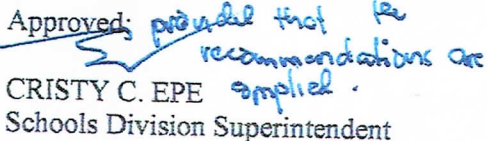 Approved: provided that the
recommendations are
complied.
CRISTY C. EPE
Schools Division Superintendent